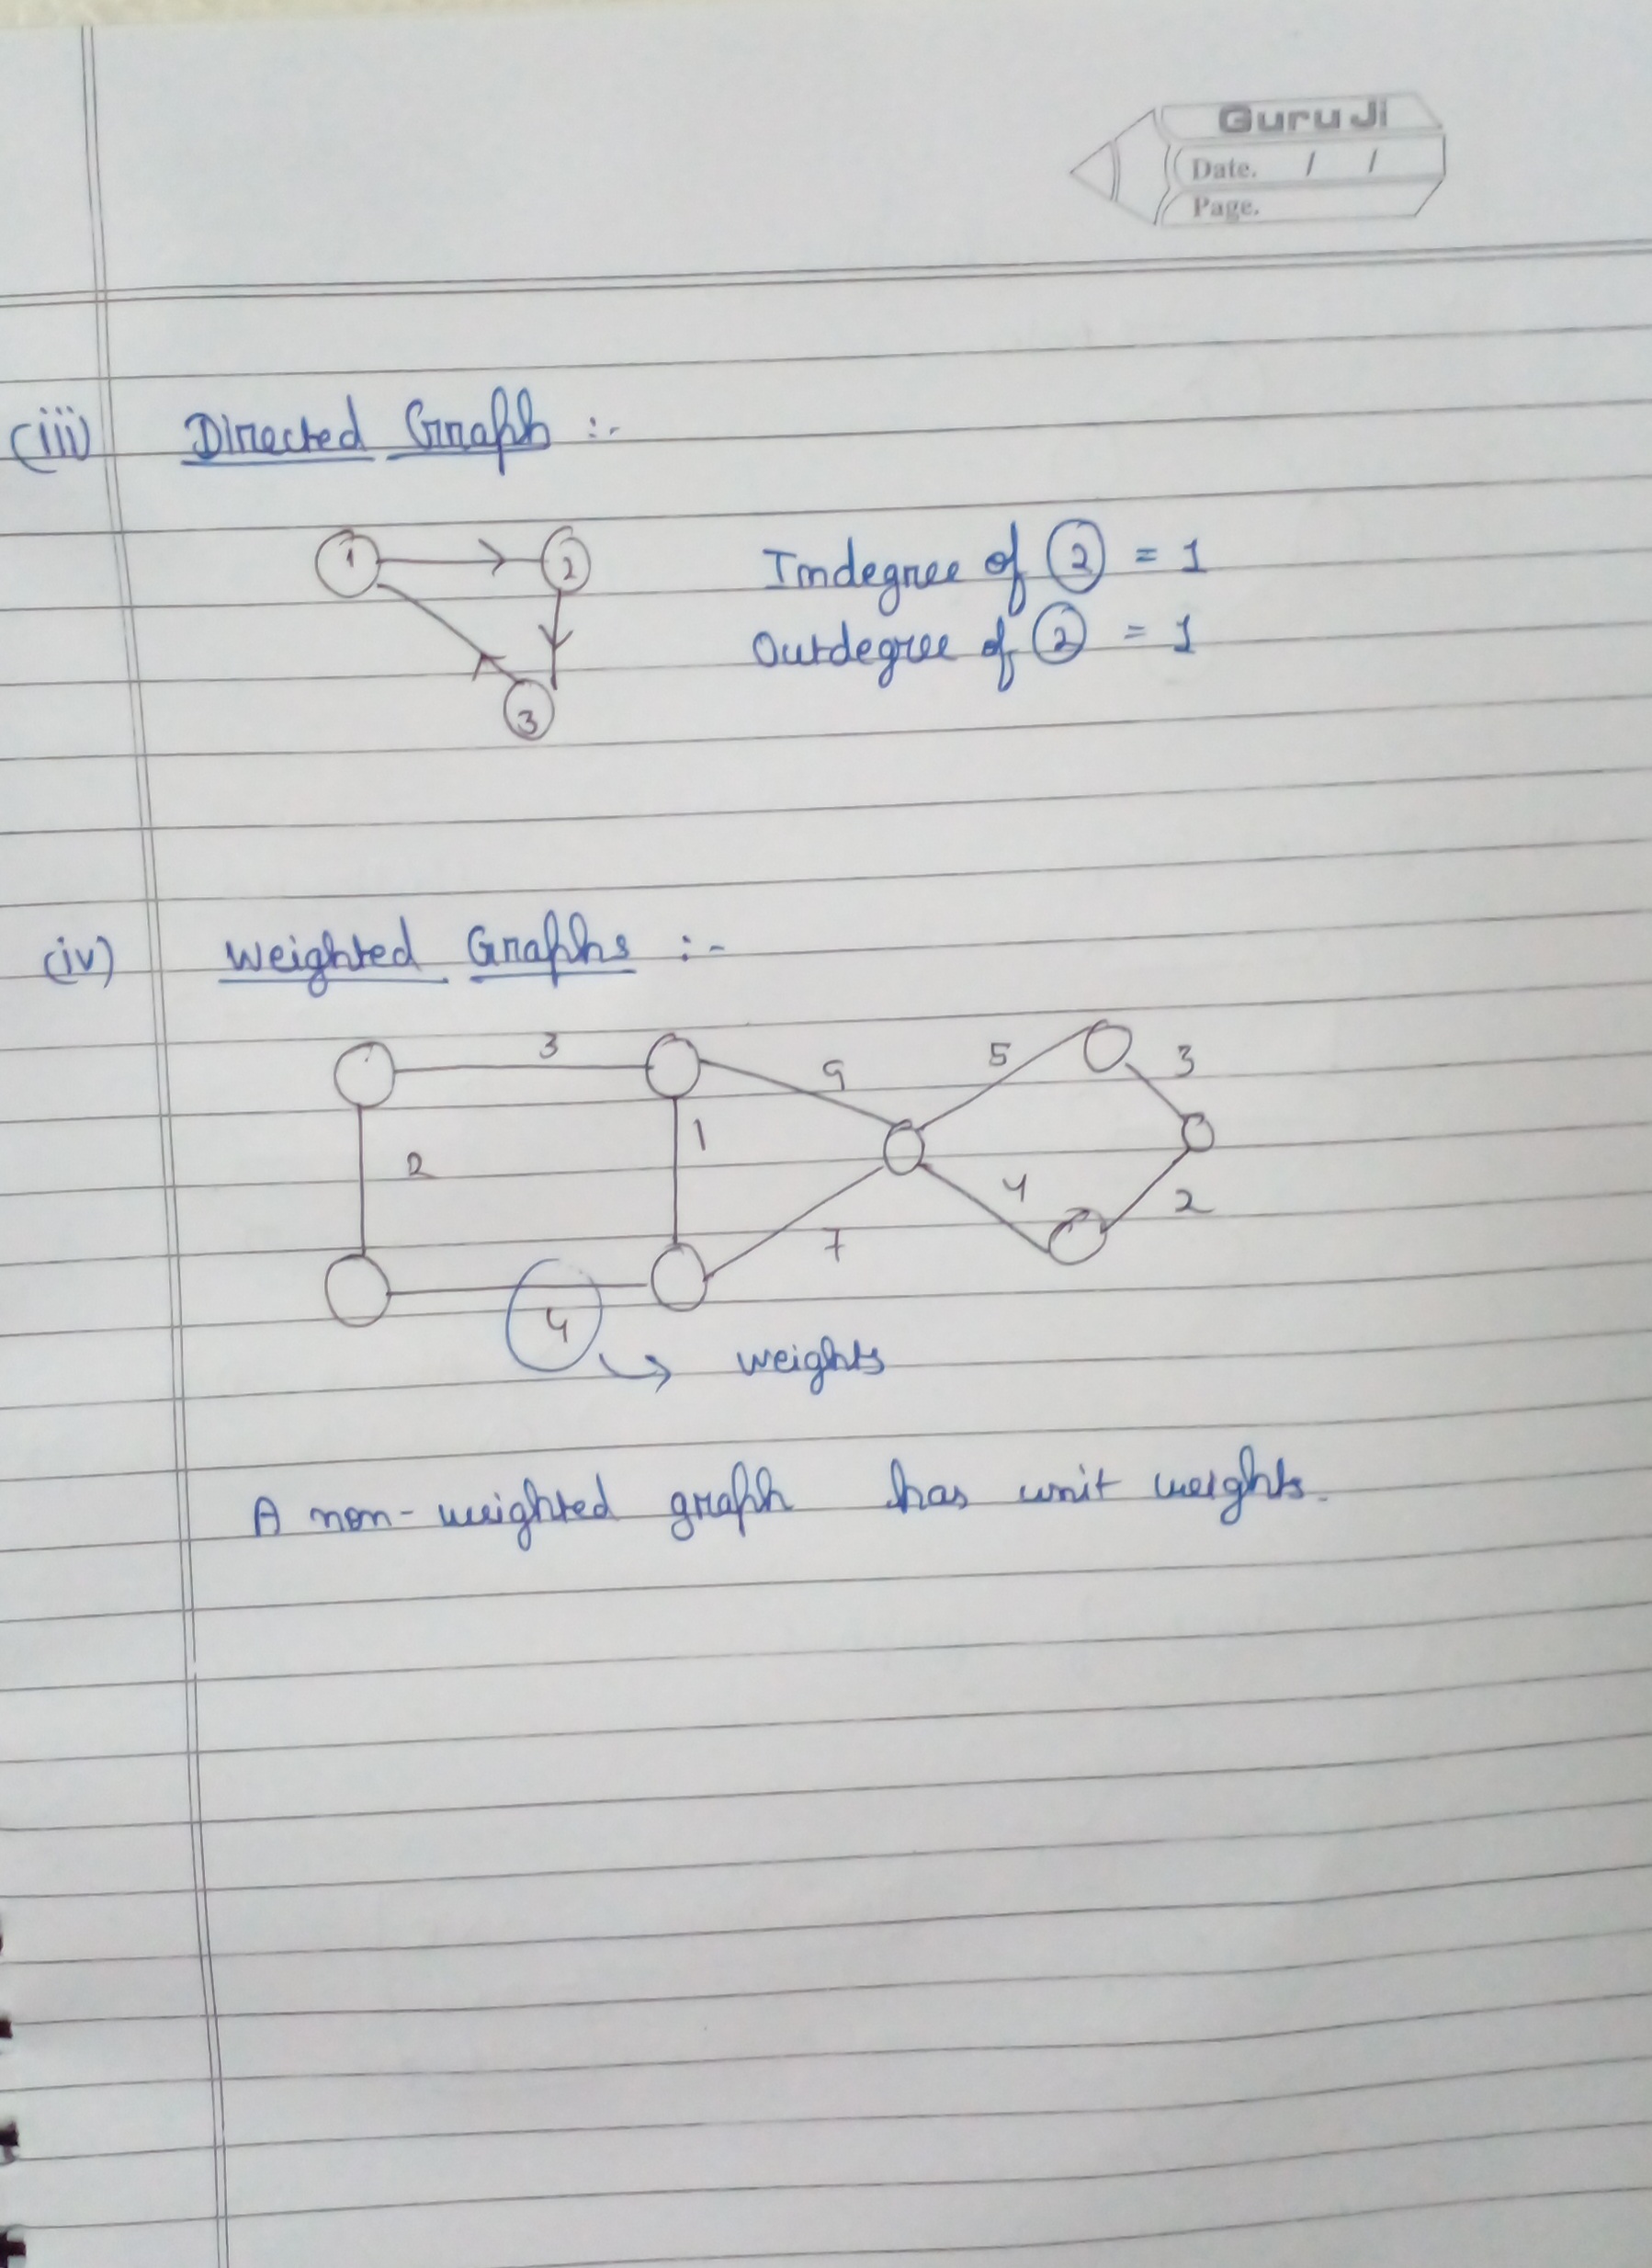 Guru Ji
Date. / /
Page.
(iii) Directed Graph :-
1 2
3
Indegree of 2 = 1
Outdegree of 2 = 1
(iv) Weighted Graphs :-
3 9 5 3
2 1 4 2
7
4
weights
A non-weighted graph has unit weights.